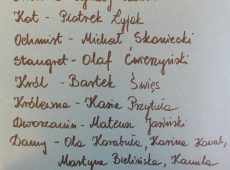 Kot - Piotrek Łyjak
Ochmist - Michał Skawiecki
Stangret - Olaf Ćwierzyński
Król - Bartek Święs
Królewna - Kasia Przytuła
Dworzanin - Mateusz Jasiński
Damy - Ola Karabuła, Karina Kowal,
Martyna Bielińska, Kamila